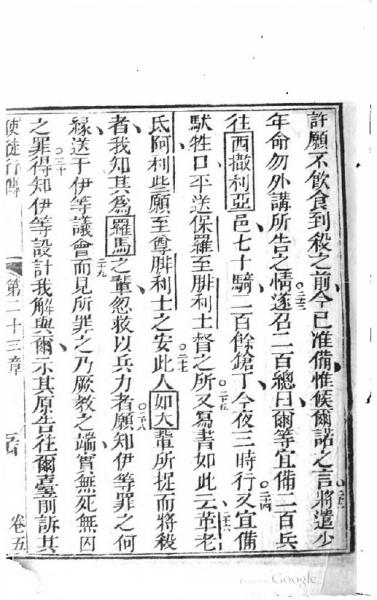 許願不飲食到殺之前今已准備惟候爾諾之言○二二將遣少
年命勿外講所告之情○二三遂召二百總曰爾等宜備二百兵
往西撒利亞邑七十騎二百餘鎗丁今夜三時行○二四又宜備
馱牲口平送保羅至腓利士督之所○二五又寫書如此云○二六革老
氏阿利些願至尊腓利士之安○二七此人如大輩所㧱而將殺
者我知其爲羅馬之輩忽救以兵力者○二八願知伊等罪之何
緣送于伊等議會○二九而見所罪之乃厥教之端實無死無囚
之罪○三十得知伊等設計我解與爾示其原告往爾臺前訴其
使徒行傳 第二十三章 卷五
Google